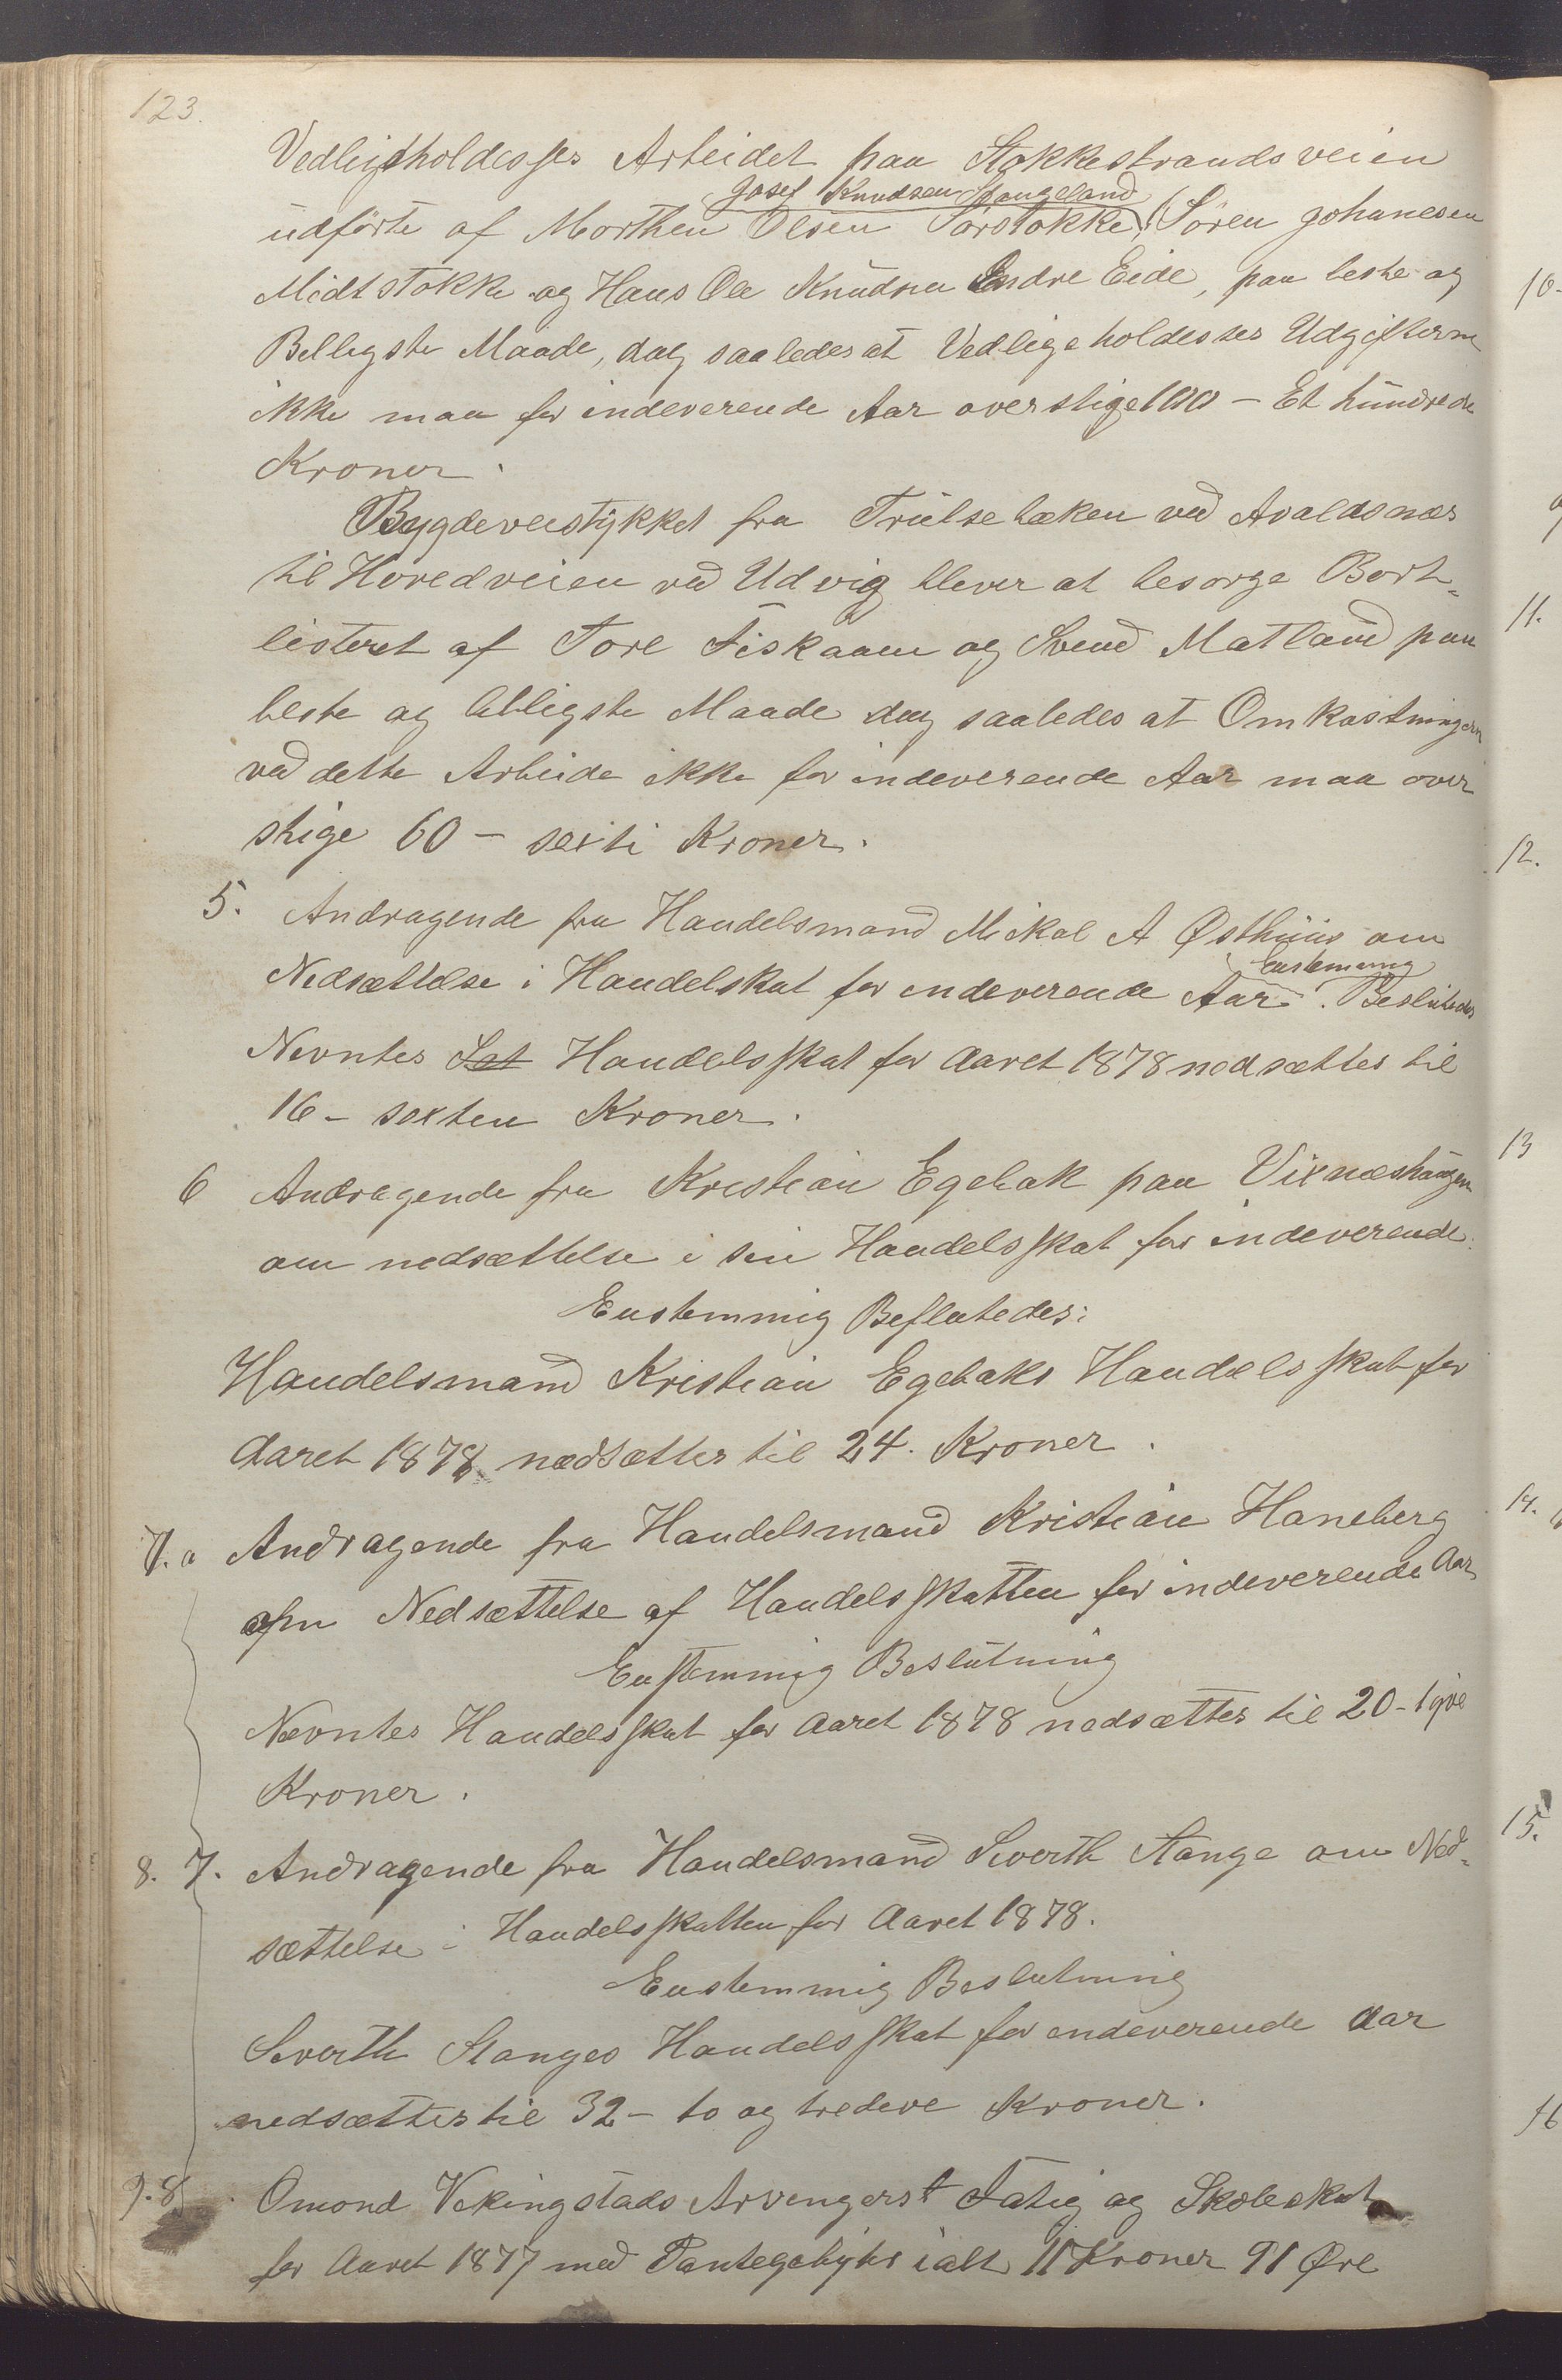 123.
Vedligeholdesses Arbeidet paa Stokkestrandsveien
Josef Knudsen Stangeland
udførte af Morthen Olsen Sørstokke, Søren Johanesen
Midtstokke og Hans Ole Knudsen Endre Eide, paa beste og
Belligste Maade, dog saaledes at Vedligeholdesses Udgifterne
ikke maa for indeverende Aar overstige 100 - Et hundrede
Kroner.
Bygdeveistykket fra Trulsebækken ved Avaldsnæs
til Hovedveien ved Udvig blever at besørge Bort-
listeret af Tore Fiskaaen og Svend Matland paa
beste og billigste Maade dog saaledes at Omkostningern
ved dette Arbeide ikke for indeverende Aar maa over
stige 60 - sexti Kroner.
5. Andragende fra Handelsmand Mikal A Østhuus om
Enstemmig
Nedsættelse i Handelskat for indeverende Aar. Beslutedes
Nevntes Sat Handelsskat for Aaret 1878 nedsættes til
16 - sexten Kroner.
6 Andragende fra Kristian Egebak paa Vixnæshaugen
om nedsættelse i sin Handelsskat for indeverende.
Enstemmig Beslutedes:
Handelsmand Kristian Egebaks Handelsskat for
Aaret 1878 nedsættes til 24. Kroner.
7. a Andragende fra Handelsmand Kristian Haneberg
om Nedsættelse af Handelsskatten for indeverende Aar
Enstemmig Beslutning
Nevntes Handelsskat for Aaret 1878 nedsættes til 20 - tyve
Kroner.
8. 7. Andragende fra Handelsmand Siverth Stange om Ned-
sættelse i Handelsskatten for Aaret 1878.
Enstemmig Beslutning
Siverth Stanges Handelsskat for indeverende Aar
nedsættes til 32 - to og tredeve Kroner.
9. 8 Omond Vekingstads Arvengers Fatig og Skoleskat
for Aaret 1877 med Pantegebyhr ialt 11 Kroner 91 Øre
10.
11.
12.
13
14.
15.
16